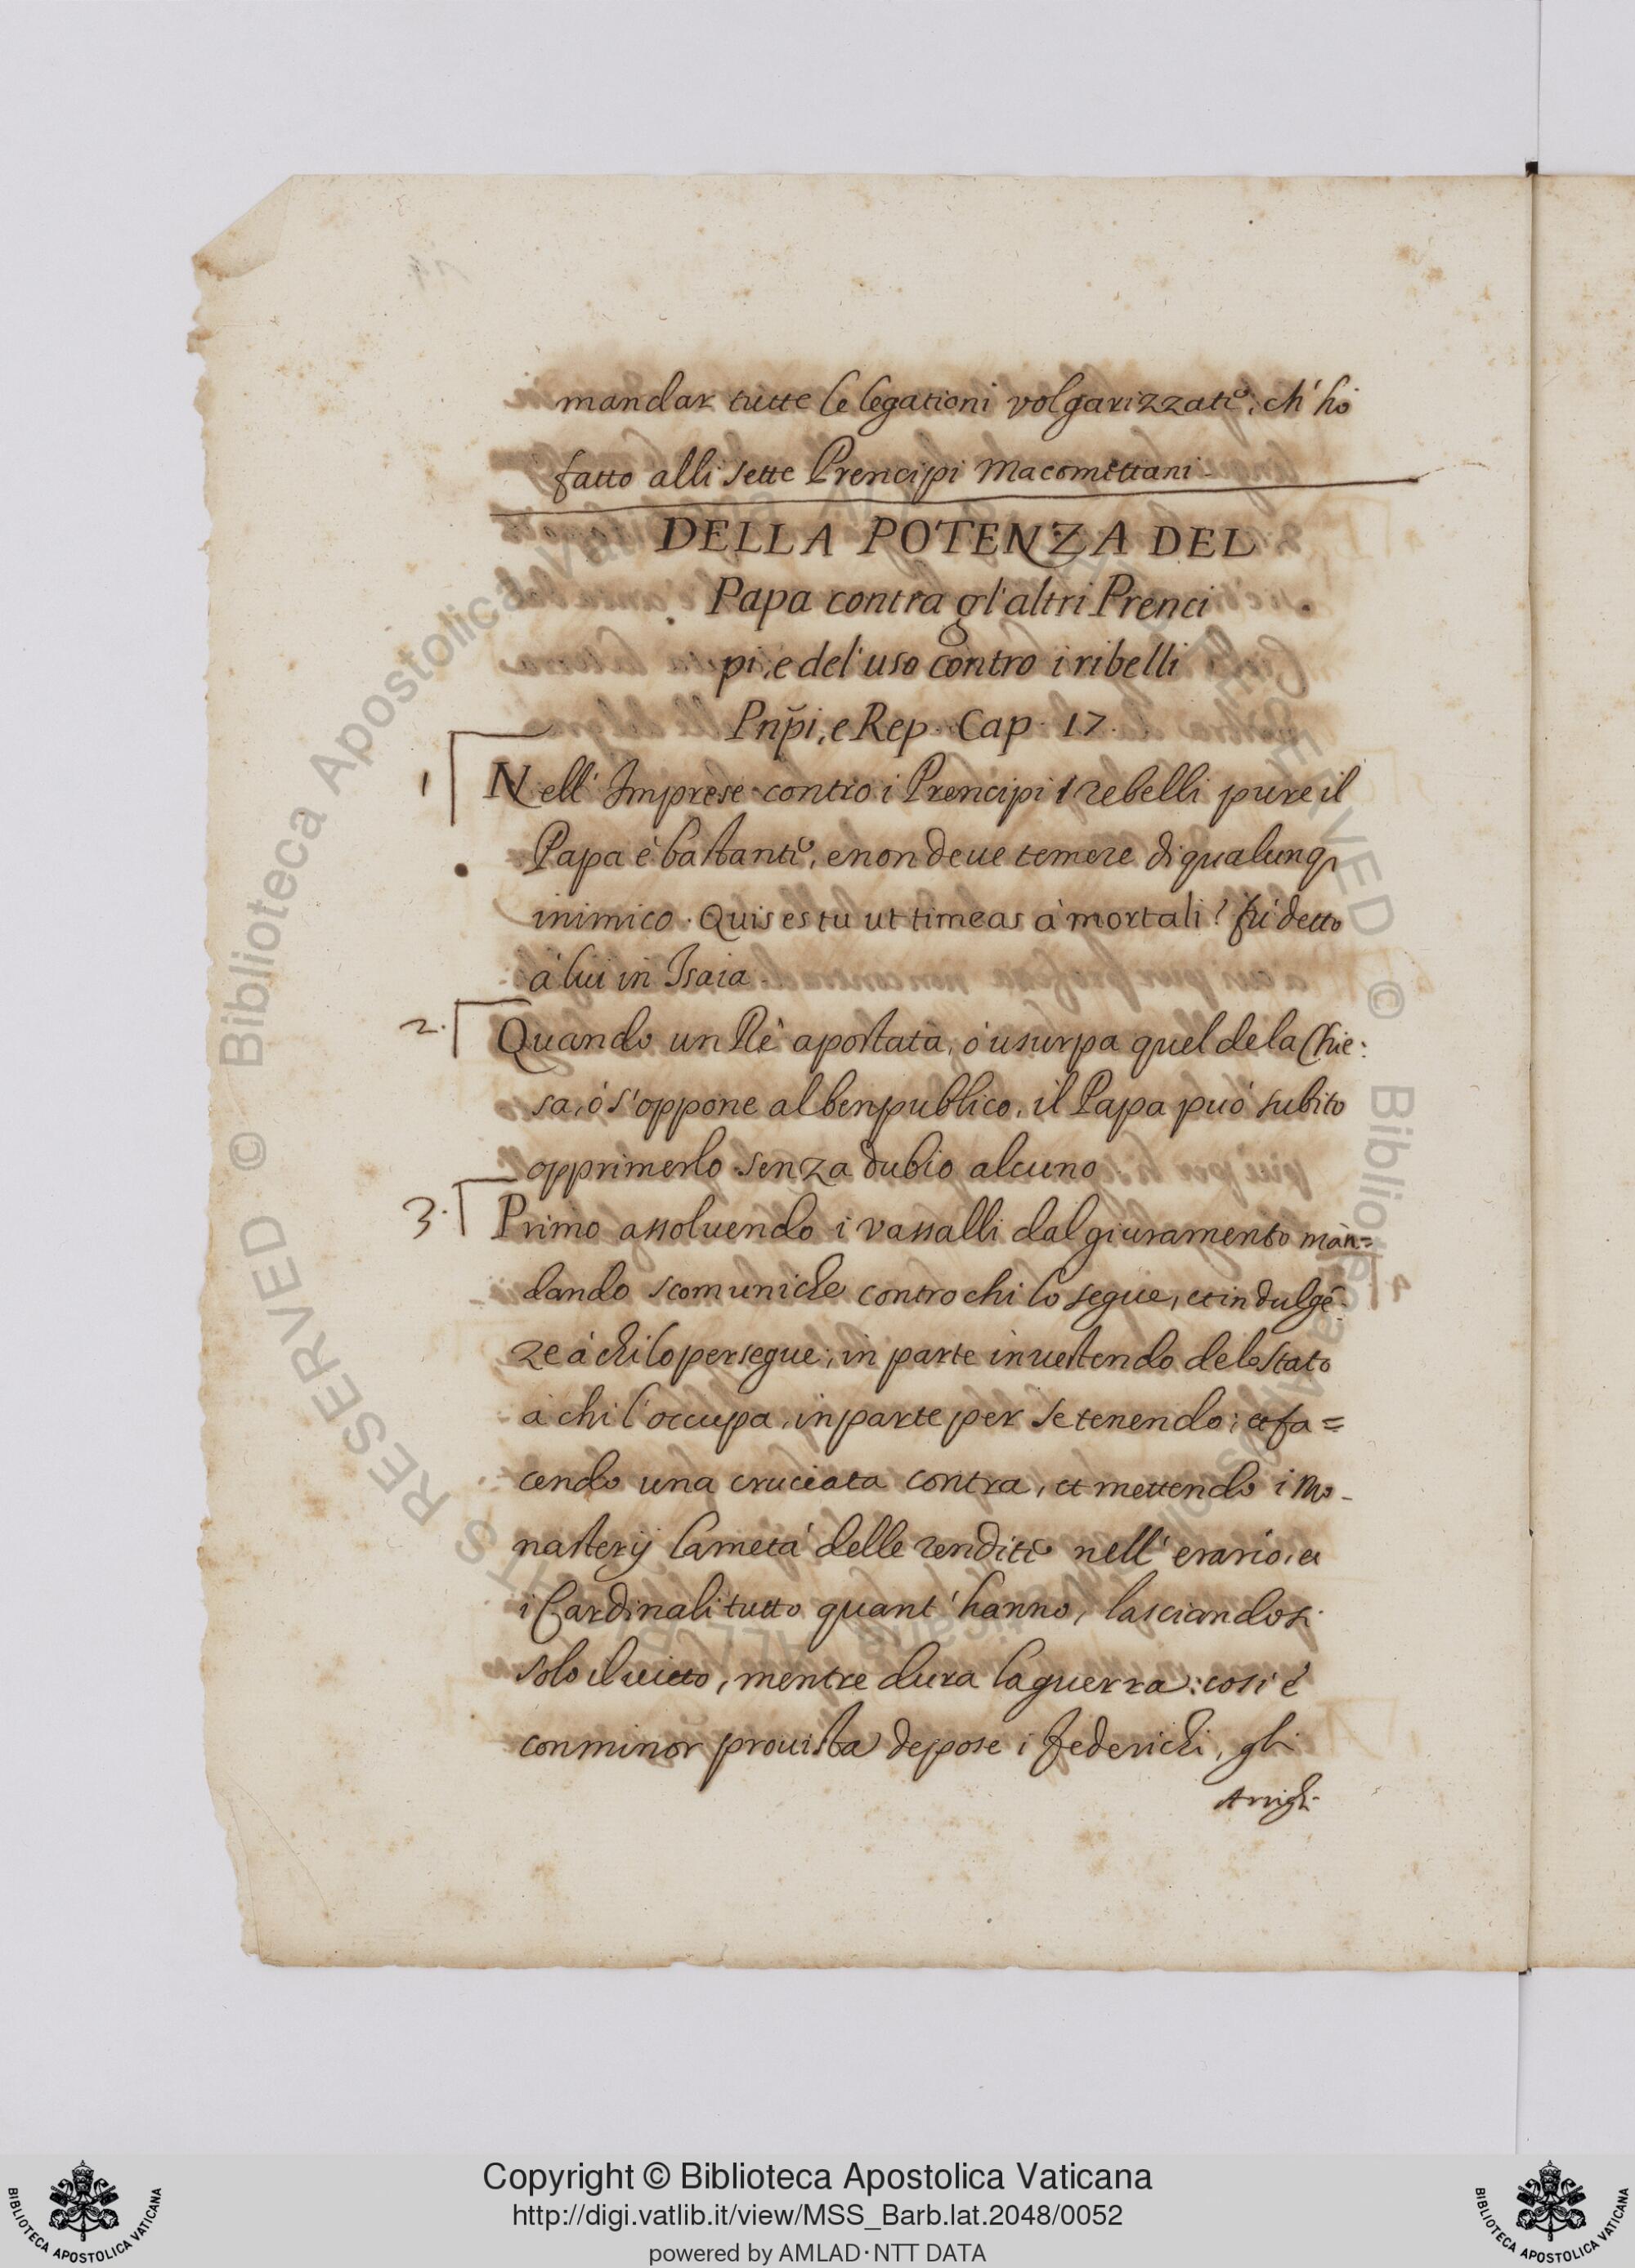 mandar tutte le legationi volgarizzate, ch'hò
fatto alli sette Prencipi Macomettani
DELLA POTENZA DEL
Papa contra gl'altri Prenci
pi, e del'uso contro i ribelli
Pnp̃i, e Rep. Cap. 17.
1 Nell'Imprese contro i Prencipi rebelli pure il
Papa è bastante, e non deue temere di qualunq
inimico. Quis es tu ut timeas à mortali? fù detto
à lui in Isaia.
2. Quando un Rè apostata, ò usurpa quel de la Chie:
sa, ò s'oppone al ben publico, il Papa può subito
opprimerlo senza dubio alcuno
3. Primo assoluendo i vassalli dal giuramento màn=
dando scomuniche contro chi lo segue, et indulgẽ-
ze à chi lo persegue; in parte inuestendo de lo stato
à chi l'occupa, in parte per se tenendo; et fa=
cendo una cruciata contra, et mettendo i Mo-
nasterij la metà delle rendite nell'erario, et
i Cardinali tutto quant'hanno, lasciandosi
solo il uitto, mentre dura la guerra: così è
con minor prouista depose i federichi, gli
Arrighi
© Biblioteca Apostolica Vaticana ALL RIGHTS RESERVED © Biblioteca Apostolica Vaticana ALL RIGHTS RESERVED
BIBLIOTECA APOSTOLICA VATICANA
Copyright © Biblioteca Apostolica Vaticana
http://digi.vatlib.it/view/MSS_Barb.lat.2048/0052
powered by AMLAD·NTT DATA
BIBLIOTECA APOSTOLICA VATICANA